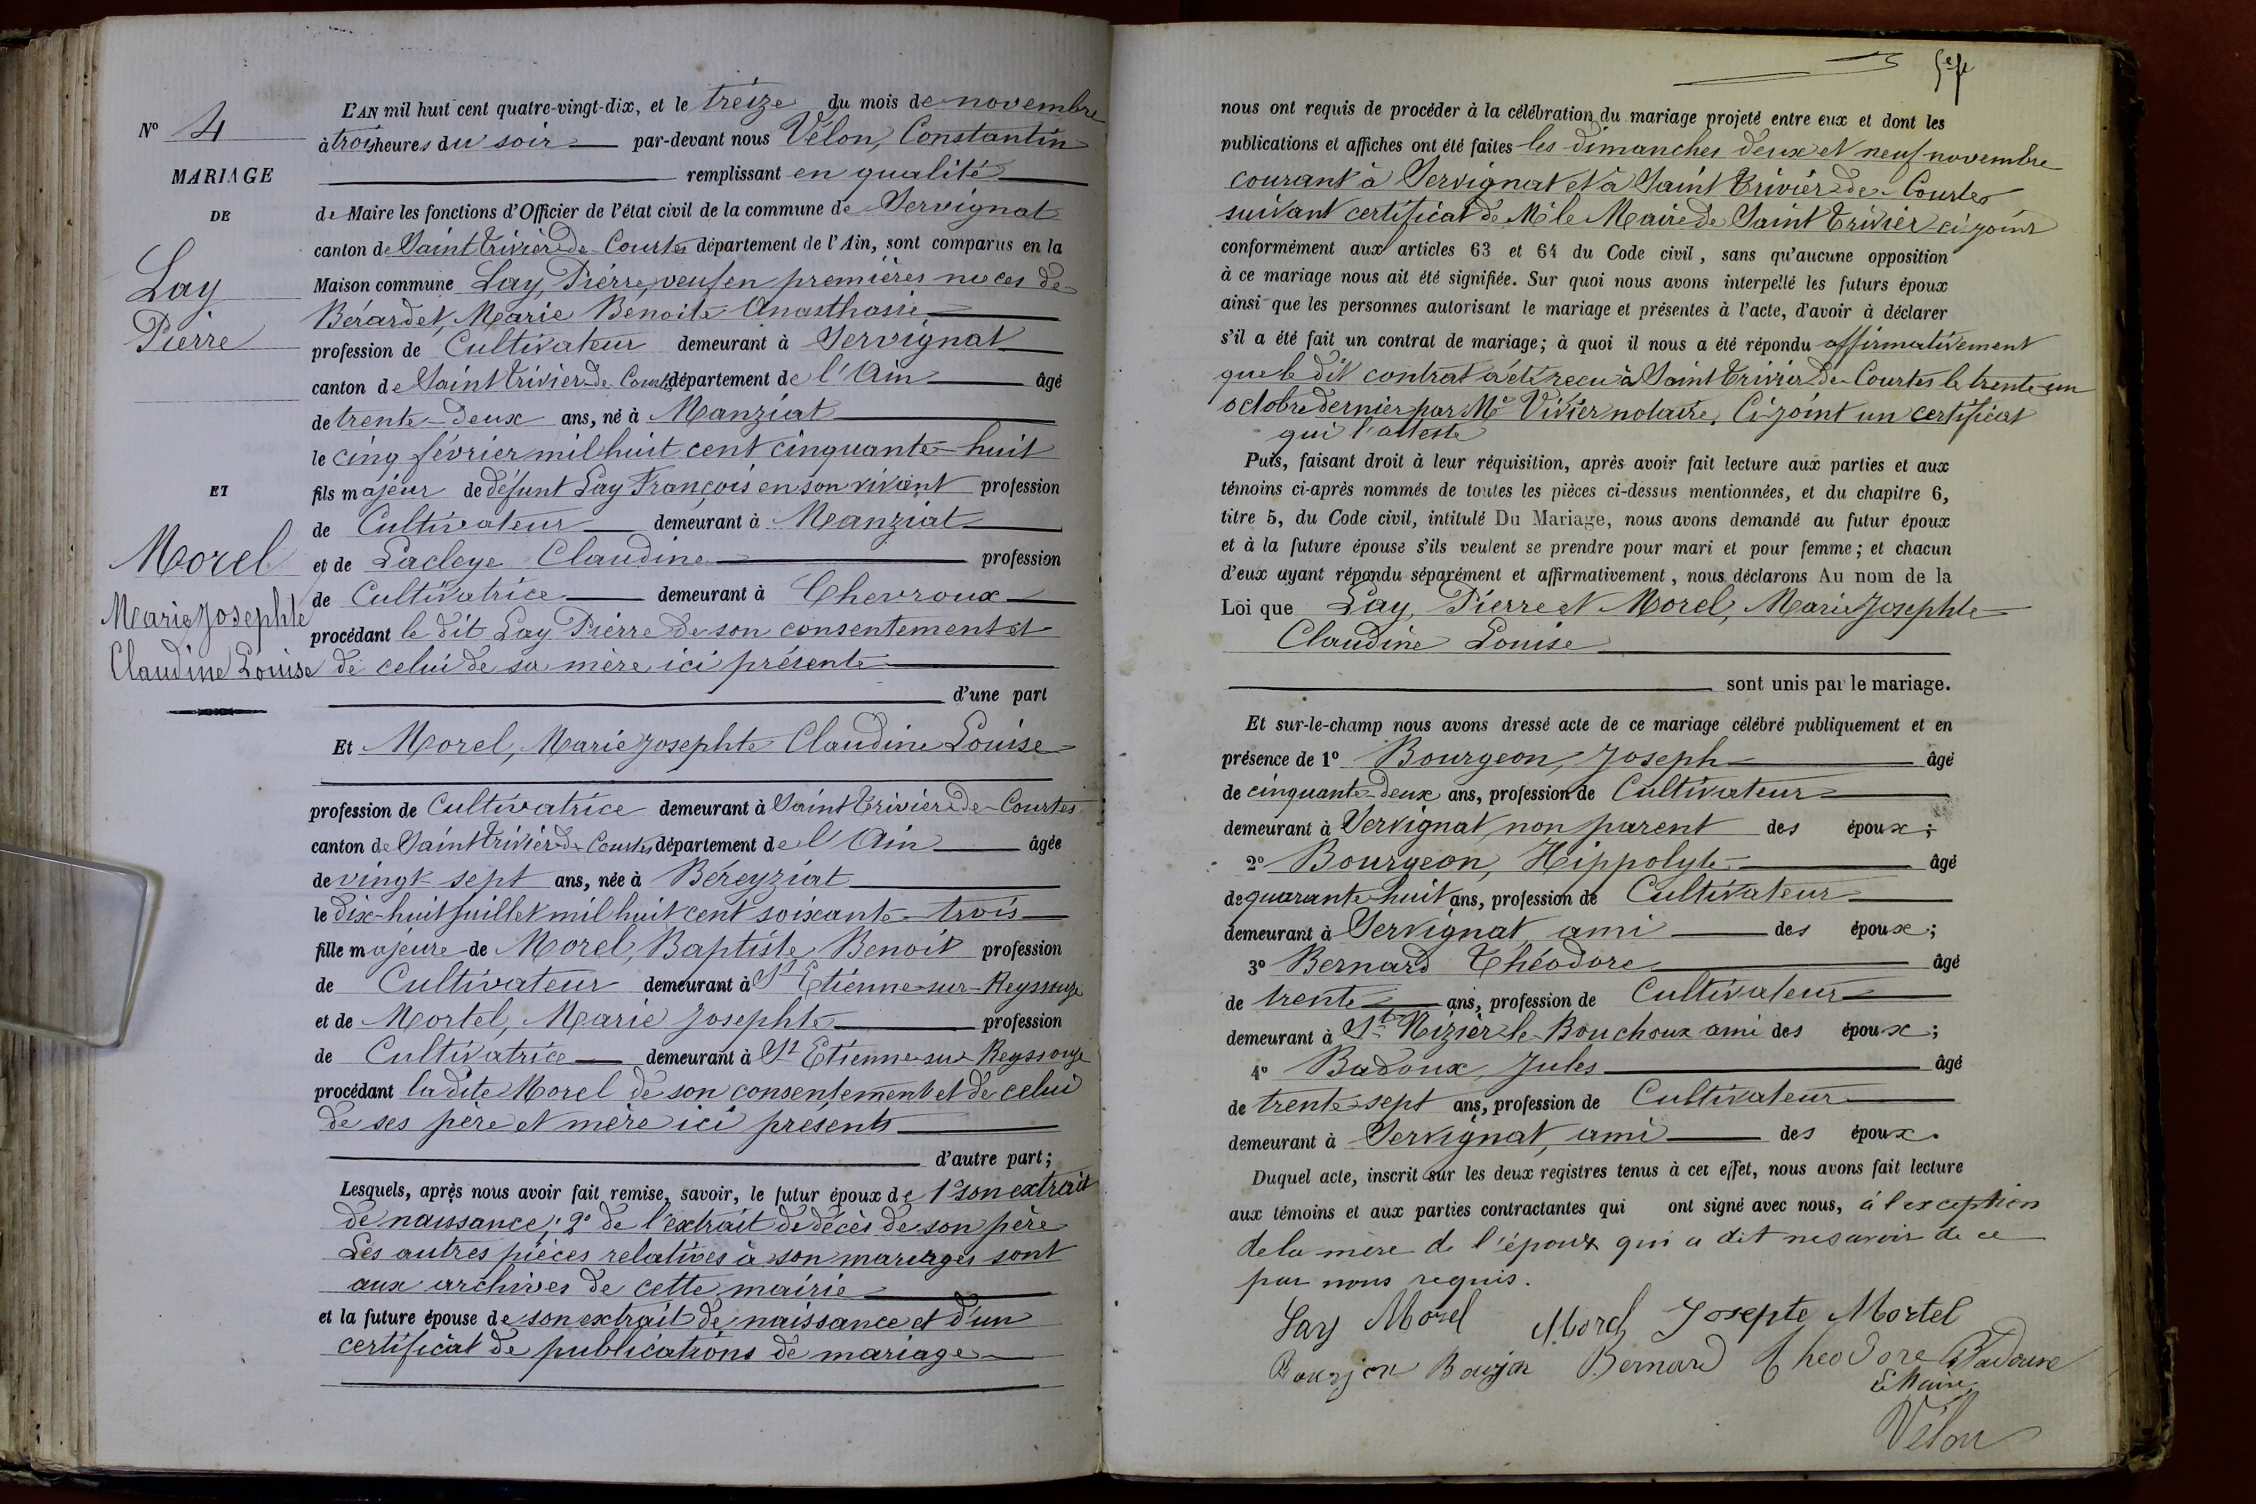 L'AN mil huit cent quatre-vingt-dix, et le treize du mois de novembre
N° 4
à trois heures du soir par-devant nous Vélon, Constantin
MARIAGE
remplissant en qualité
DE
de Maire les fonctions d'Officier de l'état civil de la commune de Servignat
canton de Saint Trivier de Courtes département de l'Ain, sont comparus en la
Lay
Maison commune Lay, Pierre, veuf en premières noces de
Pierre
Bérardet, Marie Benoite Anasthasie
profession de Cultivateur demeurant à Servignat
canton de Saint Trivier de Courtes département de l'Ain âgé
de trente-deux ans, né à Manziat
le cinq février mil huit cent cinquante-huit
ET
fils majeur de défunt Lay François en son vivant profession
de Cultivateur demeurant à Manziat
Morel
et de Lacleye Claudine profession
Marie Josephte
de Cultivatrice demeurant à Chevroux
procédant le dit Lay Pierre de son consentement et
Claudine Louise
de celui de sa mère ici présente
d'une part
Et Morel, Marie Josephte Claudine Louise
profession de Cultivatrice demeurant à Saint Trivier de Courtes
canton de Saint Trivier de Courtes département de l'Ain âgée
de vingt-sept ans, née à Béreyziat
le dix-huit juillet mil huit cent soixante-trois
fille majeure de Morel, Baptiste, Benoit profession
de Cultivateur demeurant à St Etienne-sur-Reyssouze
et de Mortel, Marie Josephte profession
de Cultivatrice demeurant à St Etienne-sur-Reyssouze
procédant la dite Morel de son consentement et de celui
de ses père et mère ici présents
d'autre part;
Lesquels, après nous avoir fait remise, savoir, le futur époux de 1° son extrait
de naissance; 2° de l'extrait de décès de son père
Les autres pièces relatives à son mariages sont
aux archives de cette mairie
et la future épouse de son extrait de naissance et d'un
certificat de publications de mariage
nous ont requis de procéder à la célébration du mariage projeté entre eux et dont les
publications et affiches ont été faites les dimanches deux et neuf novembre
courant à Servignat et à Saint Trivier de Courtes
suivant certificat de Mr le Maire de Saint Trivier ci-joint
conformément aux articles 63 et 64 du Code civil, sans qu'aucune opposition
à ce mariage nous ait été signifiée. Sur quoi nous avons interpellé les futurs époux
ainsi que les personnes autorisant le mariage et présentes à l'acte, d'avoir à déclarer
s'il a été fait un contrat de mariage; à quoi il nous a été répondu affirmativement
que le dit contrat a été reçu à Saint Trivier de Courtes le trente-un
octobre dernier par Me Vivier notaire, Ci-joint un certificat
qui l'atteste
Puis, faisant droit à leur réquisition, après avoir fait lecture aux parties et aux
témoins ci-après nommés de toutes les pièces ci-dessus mentionnées, et du chapitre 6,
titre 5, du Code civil, intitulé Du Mariage, nous avons demandé au futur époux
et à la future épouse s'ils veulent se prendre pour mari et pour femme; et chacun
d'eux ayant répondu séparément et affirmativement, nous déclarons Au nom de la
Loi que Lay, Pierre et Morel, Marie Josephte
Claudine Louise
sont unis par le mariage.
Et sur-le-champ nous avons dressé acte de ce mariage célébré publiquement et en
présence de 1° Bourgeon, Joseph âgé
de cinquante-deux ans, profession de Cultivateur
demeurant à Servignat, non parent des époux;
2° Bourgeon, Hippolyte âgé
de quarante-huit ans, profession de Cultivateur
demeurant à Servignat, ami des époux;
3° Bernard Théodore âgé
de trente ans, profession de Cultivateur
demeurant à St Nizier-le-Bouchoux ami des époux;
4° Badoux, Jules âgé
de trente-sept ans, profession de Cultivateur
demeurant à Servignat, ami des époux.
Duquel acte, inscrit sur les deux registres tenus à cet effet, nous avons fait lecture
aux témoins et aux parties contractantes qui ont signé avec nous, à l'exception
de la mère de l'époux qui a dit ne savoir de ce
par nous requis.
Lay Morel Morel Josepte Mortel
Bourjon Bourjon Bernard Theodore Badoux
Le Maire,
Vélon